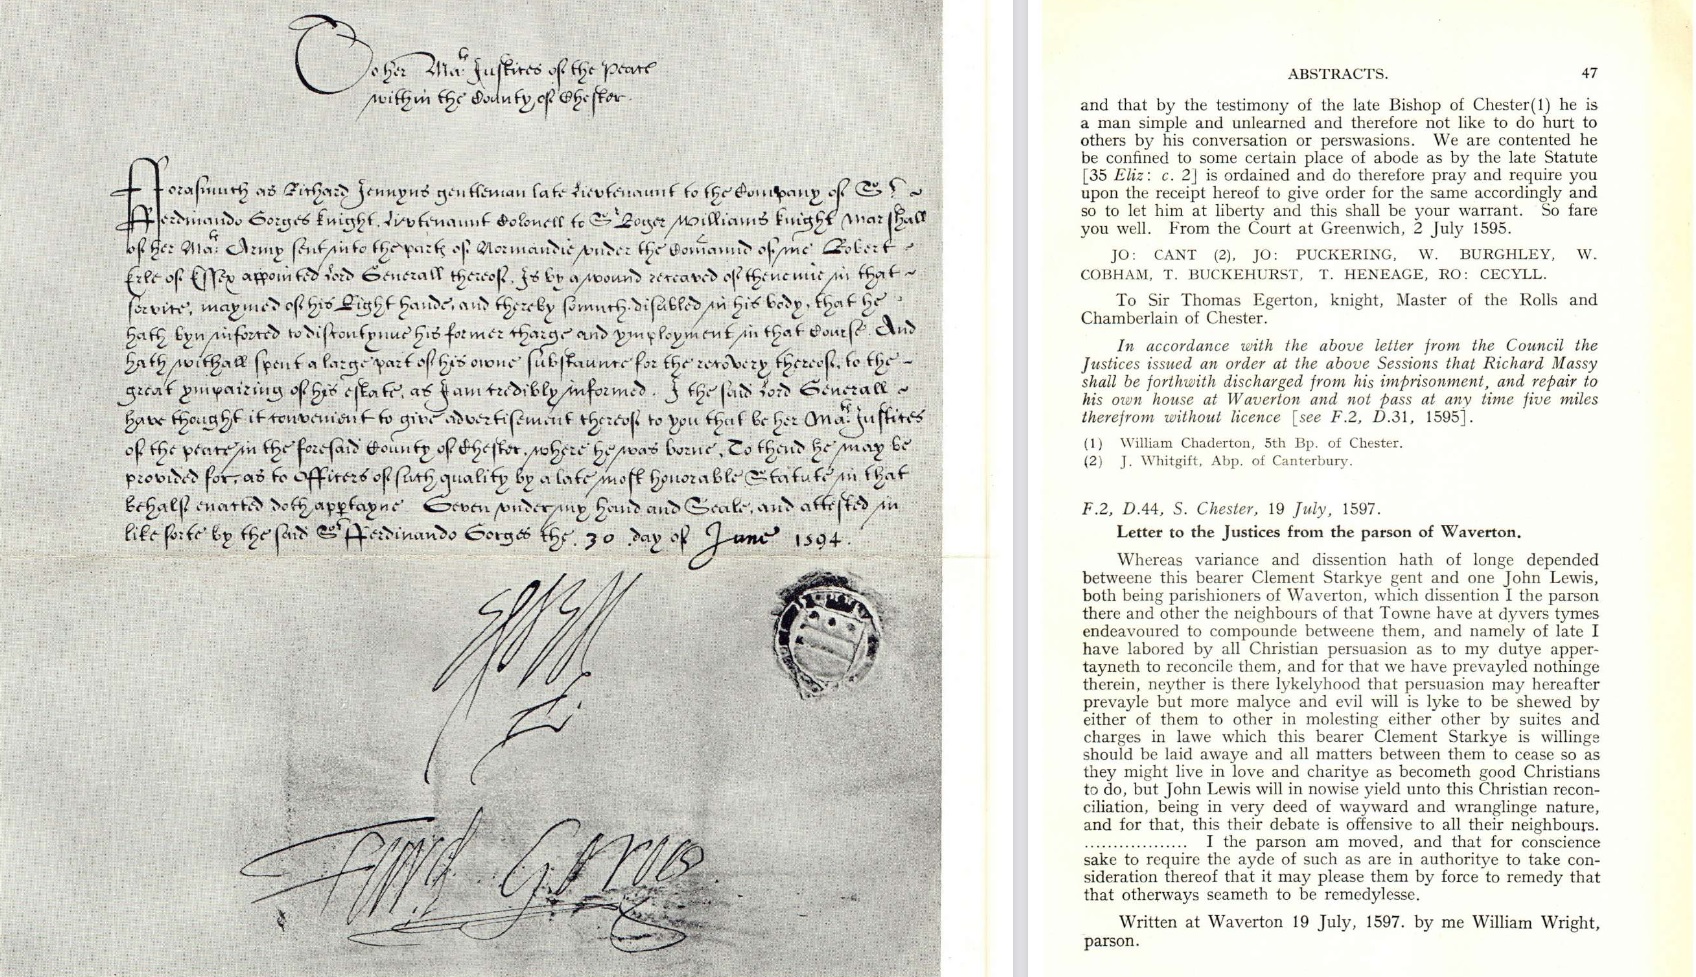 To her Ma:ts Justices of the Peace
within the County of Chester.
Forasmuch as Richard Jennyns gentleman late Lievtenaunt to the Company of Sr
Ferdinando Gorges knight, Lievtenaunt Colonell to Sr Roger Williams knight Marshall
of her Ma:ts Army sent into the parts of Normandie vnder the Comaund of me Robert
Erle of Essex appointed Lord Generall thereof, Is by a wound receaved of thenemie in that
servite, maymed of his Right hande, and thereby somuch disabled in his body, that he
hath byn inforced to discontynue his former charge and ymployment in that Course. And
hath withall spent a large part of his owne substaunce for the recovery thereof, to the
great ympairing of his estate, as I am credibly informed. I the said Lord Generall
have thought it convenient to give advertisement thereof to you that be her Ma:ts Justices
of the peace in the foresaid County of Chester, where he was borne, To thend he may be
provided for, as to Officers of such quality by a late most honorable Statute in that
behalf enacted doth appertayne Geven vnder my hand and Seale, and attested in
like sorte by the said Sr Ferdinando Gorges the. 30 day of June 1594.
Essex
Ferd Gorges
ABSTRACTS. 47
and that by the testimony of the late Bishop of Chester(1) he is
a man simple and unlearned and therefore not like to do hurt to
others by his conversation or perswasions. We are contented he
be confined to some certain place of abode as by the late Statute
[35 Eliz: c. 2] is ordained and do therefore pray and require you
upon the receipt hereof to give order for the same accordingly and
so to let him at liberty and this shall be your warrant. So fare
you well. From the Court at Greenwich, 2 July 1595.
JO: CANT (2), JO: PUCKERING, W. BURGHLEY, W.
COBHAM, T. BUCKEHURST, T. HENEAGE, RO: CECYLL.
To Sir Thomas Egerton, knight, Master of the Rolls and
Chamberlain of Chester.
In accordance with the above letter from the Council the
Justices issued an order at the above Sessions that Richard Massy
shall be forthwith discharged from his imprisonment, and repair to
his own house at Waverton and not pass at any time five miles
therefrom without licence [see F.2, D.31, 1595].
(1) William Chaderton, 5th Bp. of Chester.
(2) J. Whitgift, Abp. of Canterbury.
F.2, D.44, S. Chester, 19 July, 1597.
Letter to the Justices from the parson of Waverton.
Whereas variance and dissention hath of longe depended
betweene this bearer Clement Starkye gent and one John Lewis,
both being parishioners of Waverton, which dissention I the parson
there and other the neighbours of that Towne have at dyvers tymes
endeavoured to compounde betweene them, and namely of late I
have labored by all Christian persuasion as to my dutye apper-
tayneth to reconcile them, and for that we have prevayled nothinge
therein, neyther is there lykelyhood that persuasion may hereafter
prevayle but more malyce and evil will is lyke to be shewed by
either of them to other in molesting either other by suites and
charges in lawe which this bearer Clement Starkye is willinge
should be laid awaye and all matters between them to cease so as
they might live in love and charitye as becometh good Christians
to do, but John Lewis will in nowise yield unto this Christian recon-
ciliation, being in very deed of wayward and wranglinge nature,
and for that, this their debate is offensive to all their neighbours.
................. I the parson am moved, and that for conscience
sake to require the ayde of such as are in authoritye to take con-
sideration thereof that it may please them by force to remedy that
that otherways seameth to be remedylesse.
Written at Waverton 19 July, 1597. by me William Wright,
parson.